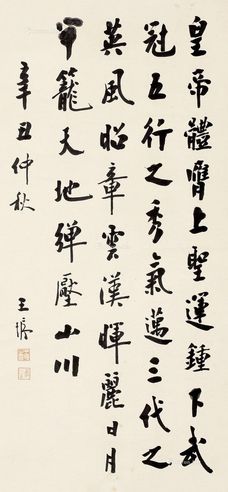 皇帝體膺上聖運鍾下武
冠五行之秀氣邁三代之
英風昭章雲漢暉麗日月
牢籠天地彈壓山川
辛丑仲秋
王